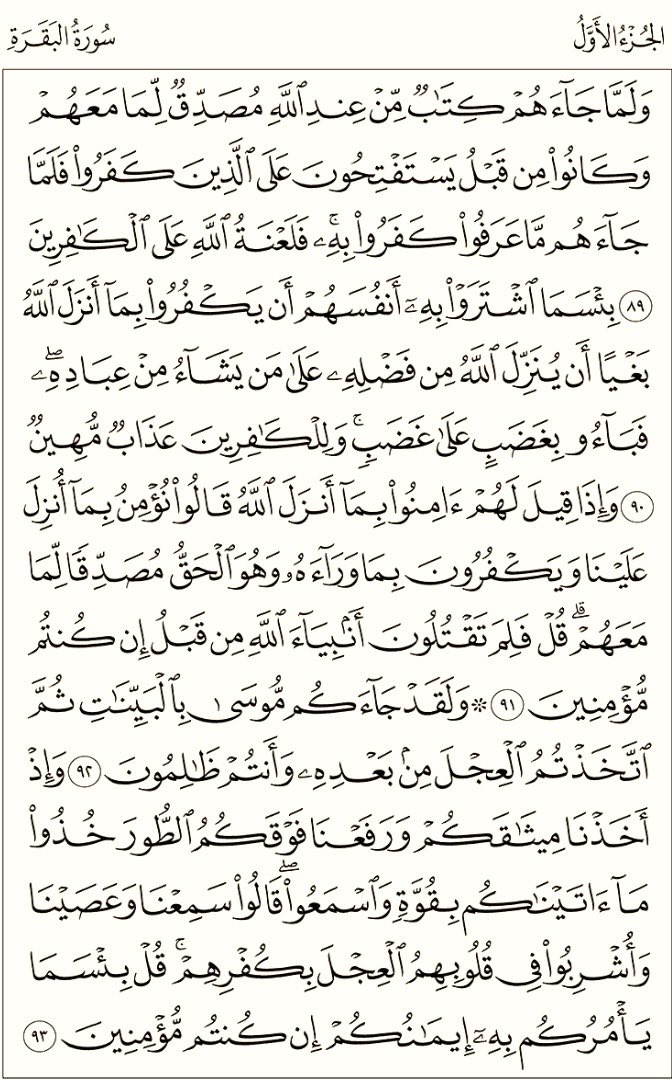 الجُزْءُ الأَوَّلُ سُورَةُ البَقَرَةِ
وَلَمَّا جَآءَهُمْ كِتَٰبٌ مِّنْ عِندِ ٱللَّهِ مُصَدِّقٌ لِّمَا مَعَهُمْ
وَكَانُوا۟ مِن قَبْلُ يَسْتَفْتِحُونَ عَلَى ٱلَّذِينَ كَفَرُوا۟ فَلَمَّا
جَآءَهُم مَّا عَرَفُوا۟ كَفَرُوا۟ بِهِۦ ۚ فَلَعْنَةُ ٱللَّهِ عَلَى ٱلْكَٰفِرِينَ
٨٩ بِئْسَمَا ٱشْتَرَوْا۟ بِهِۦٓ أَنفُسَهُمْ أَن يَكْفُرُوا۟ بِمَآ أَنزَلَ ٱللَّهُ
بَغْيًا أَن يُنَزِّلَ ٱللَّهُ مِن فَضْلِهِۦ عَلَىٰ مَن يَشَآءُ مِنْ عِبَادِهِۦ ۖ
فَبَآءُو بِغَضَبٍ عَلَىٰ غَضَبٍ ۚ وَلِلْكَٰفِرِينَ عَذَابٌ مُّهِينٌ
٩٠ وَإِذَا قِيلَ لَهُمْ ءَامِنُوا۟ بِمَآ أَنزَلَ ٱللَّهُ قَالُوا۟ نُؤْمِنُ بِمَآ أُنزِلَ
عَلَيْنَا وَيَكْفُرُونَ بِمَا وَرَآءَهُۥ وَهُوَ ٱلْحَقُّ مُصَدِّقًا لِّمَا
مَعَهُمْ ۗ قُلْ فَلِمَ تَقْتُلُونَ أَنۢبِيَآءَ ٱللَّهِ مِن قَبْلُ إِن كُنتُم
مُّؤْمِنِينَ ٩١ ۞ وَلَقَدْ جَآءَكُم مُّوسَىٰ بِٱلْبَيِّنَٰتِ ثُمَّ
ٱتَّخَذْتُمُ ٱلْعِجْلَ مِنۢ بَعْدِهِۦ وَأَنتُمْ ظَٰلِمُونَ ٩٢ وَإِذْ
أَخَذْنَا مِيثَٰقَكُمْ وَرَفَعْنَا فَوْقَكُمُ ٱلطُّورَ خُذُوا۟
مَآ ءَاتَيْنَٰكُم بِقُوَّةٍ وَٱسْمَعُوا۟ ۖ قَالُوا۟ سَمِعْنَا وَعَصَيْنَا
وَأُشْرِبُوا۟ فِى قُلُوبِهِمُ ٱلْعِجْلَ بِكُفْرِهِمْ ۚ قُلْ بِئْسَمَا
يَأْمُرُكُم بِهِۦٓ إِيمَٰنُكُمْ إِن كُنتُم مُّؤْمِنِينَ ٩٣